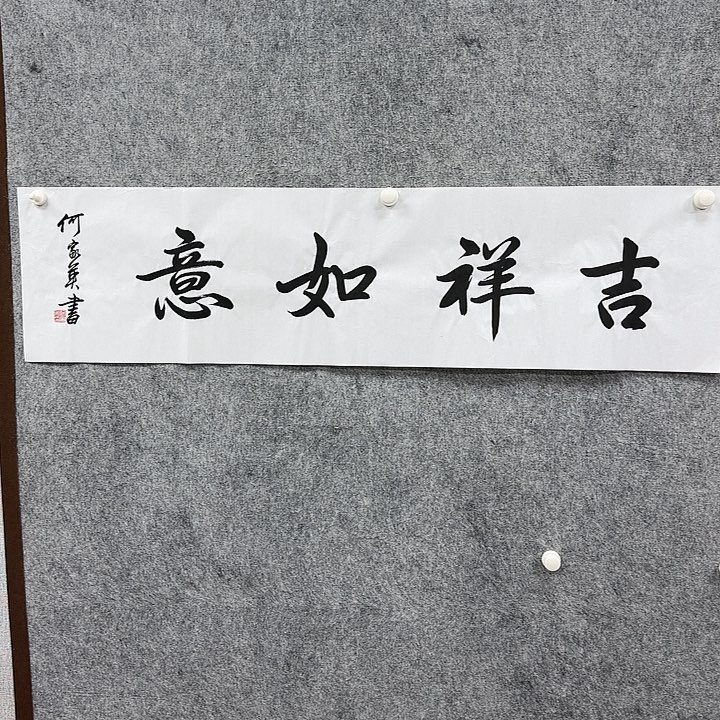 吉祥如意
何家英書